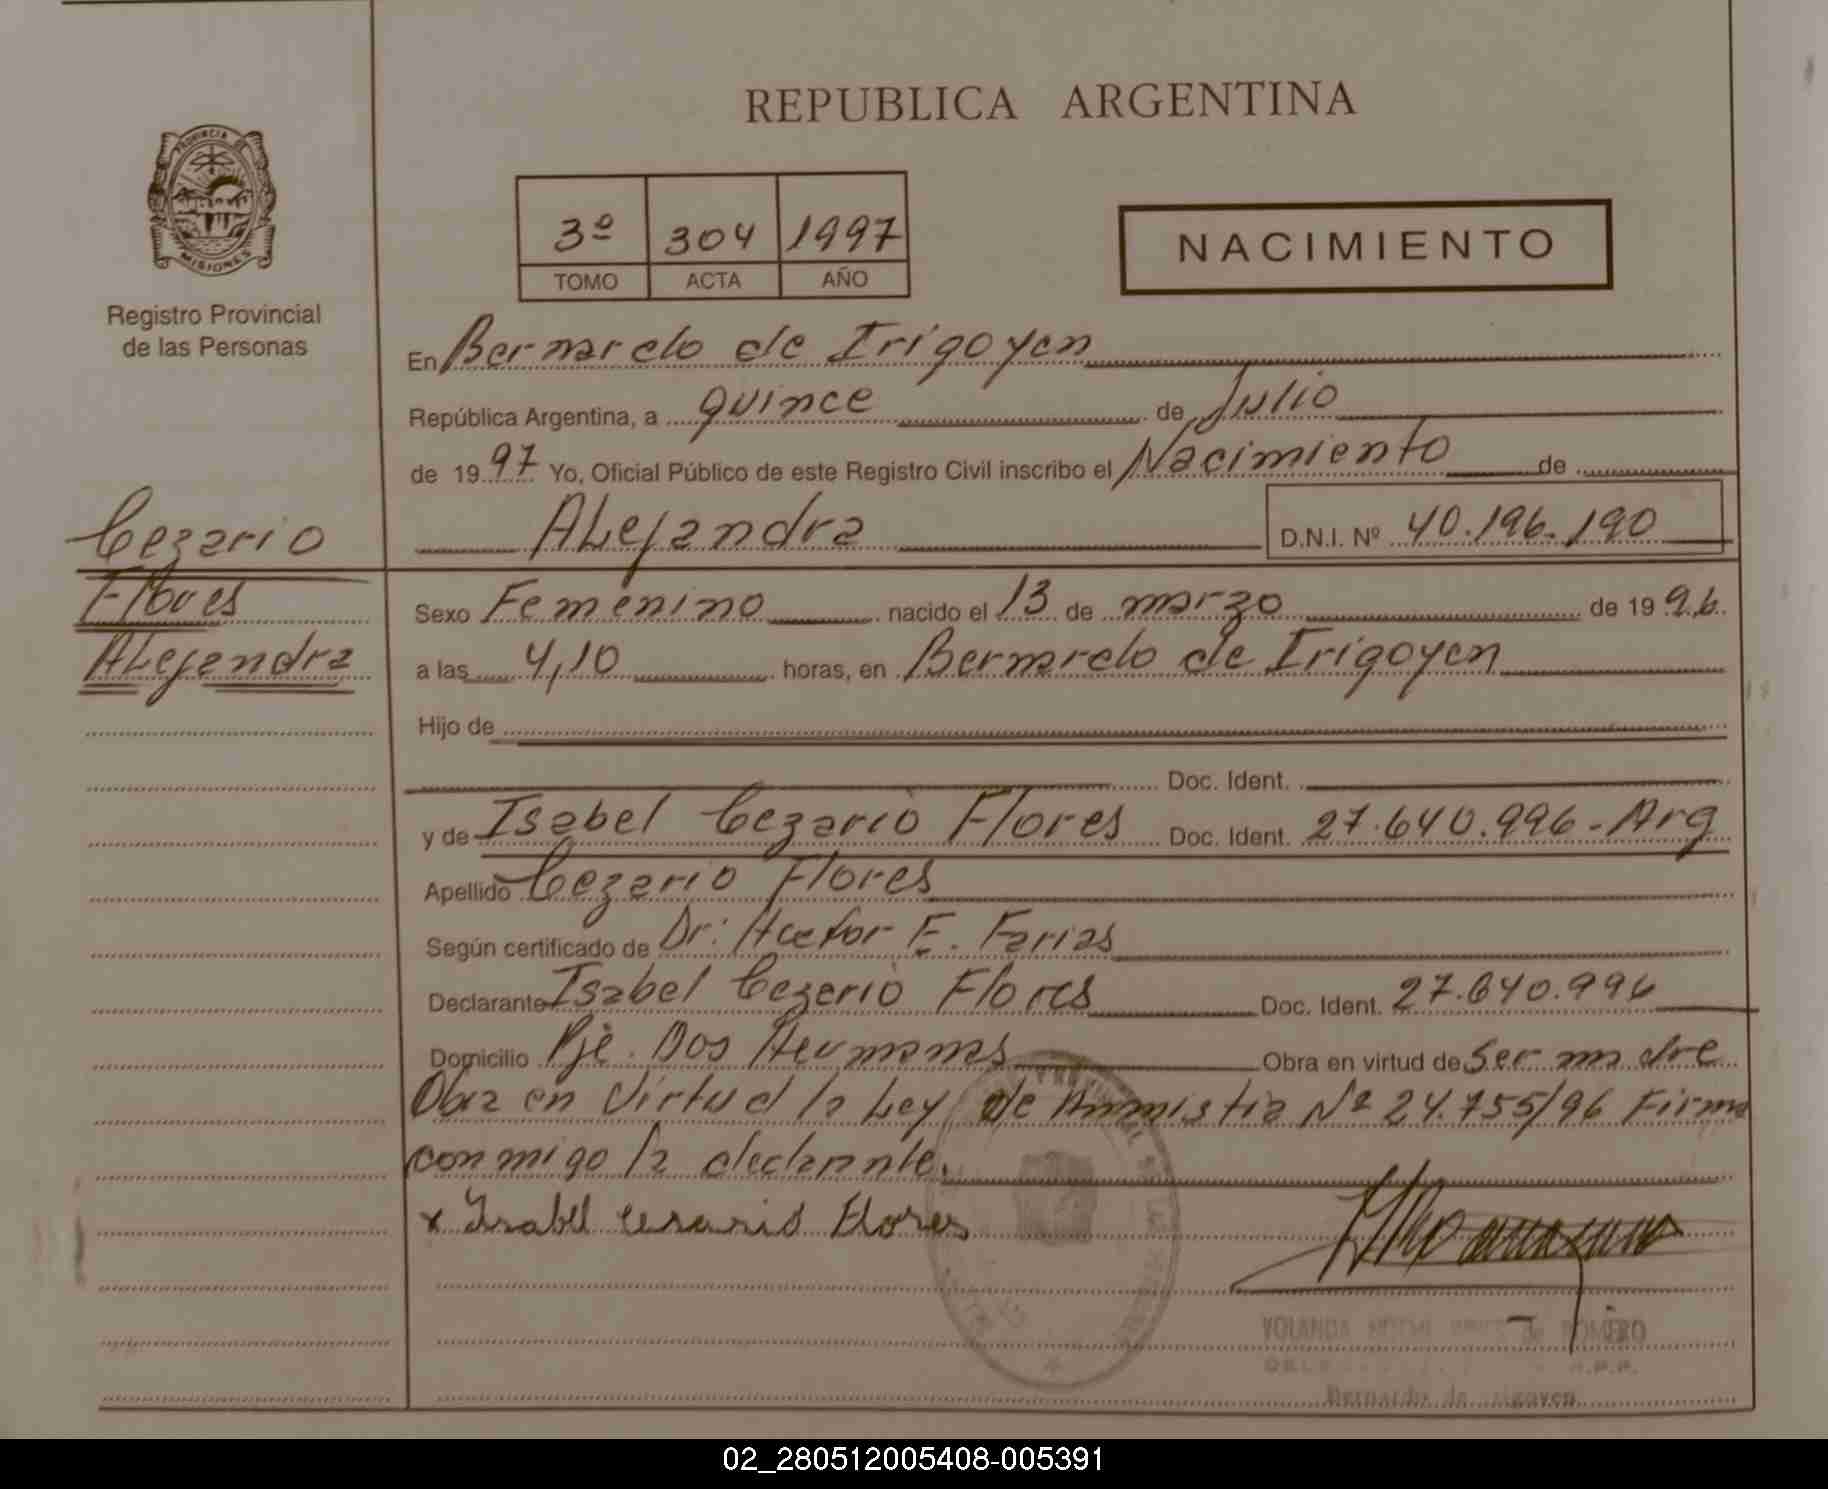 REPUBLICA ARGENTINA
PROVINCIA DE
MISIONES
Registro Provincial
de las Personas
3º 304 1997
TOMO ACTA AÑO
NACIMIENTO
En Bernardo de Irigoyen
República Argentina, a quince de Julio
de 1997 Yo, Oficial Público de este Registro Civil inscribo el Nacimiento de
Alejandra D.N.I. Nº 40.196.190
Cezario
Flores
Alejandra
Sexo Femenino nacido el 13 de marzo de 1996
a las 4,10 horas, en Bernardo de Irigoyen
Hijo de
Doc. Ident.
y de Isabel Cezario Flores Doc. Ident. 27.640.996-Arg
Apellido Cezario Flores
Según certificado de Dr: Hector E. Farias
Declarante Isabel Cezerio Flores Doc. Ident. 27.640.996
Domicilio Pje. Dos Hermanas Obra en virtud de Ser madre
Obra en Virtud la Ley de Amnistia Nº 24.755/96 Firma
conmigo la declarante.
x Isabel Cesario Flores
YOLANDA de ROMERO
Bernardo de Irigoyen
02_280512005408-005391